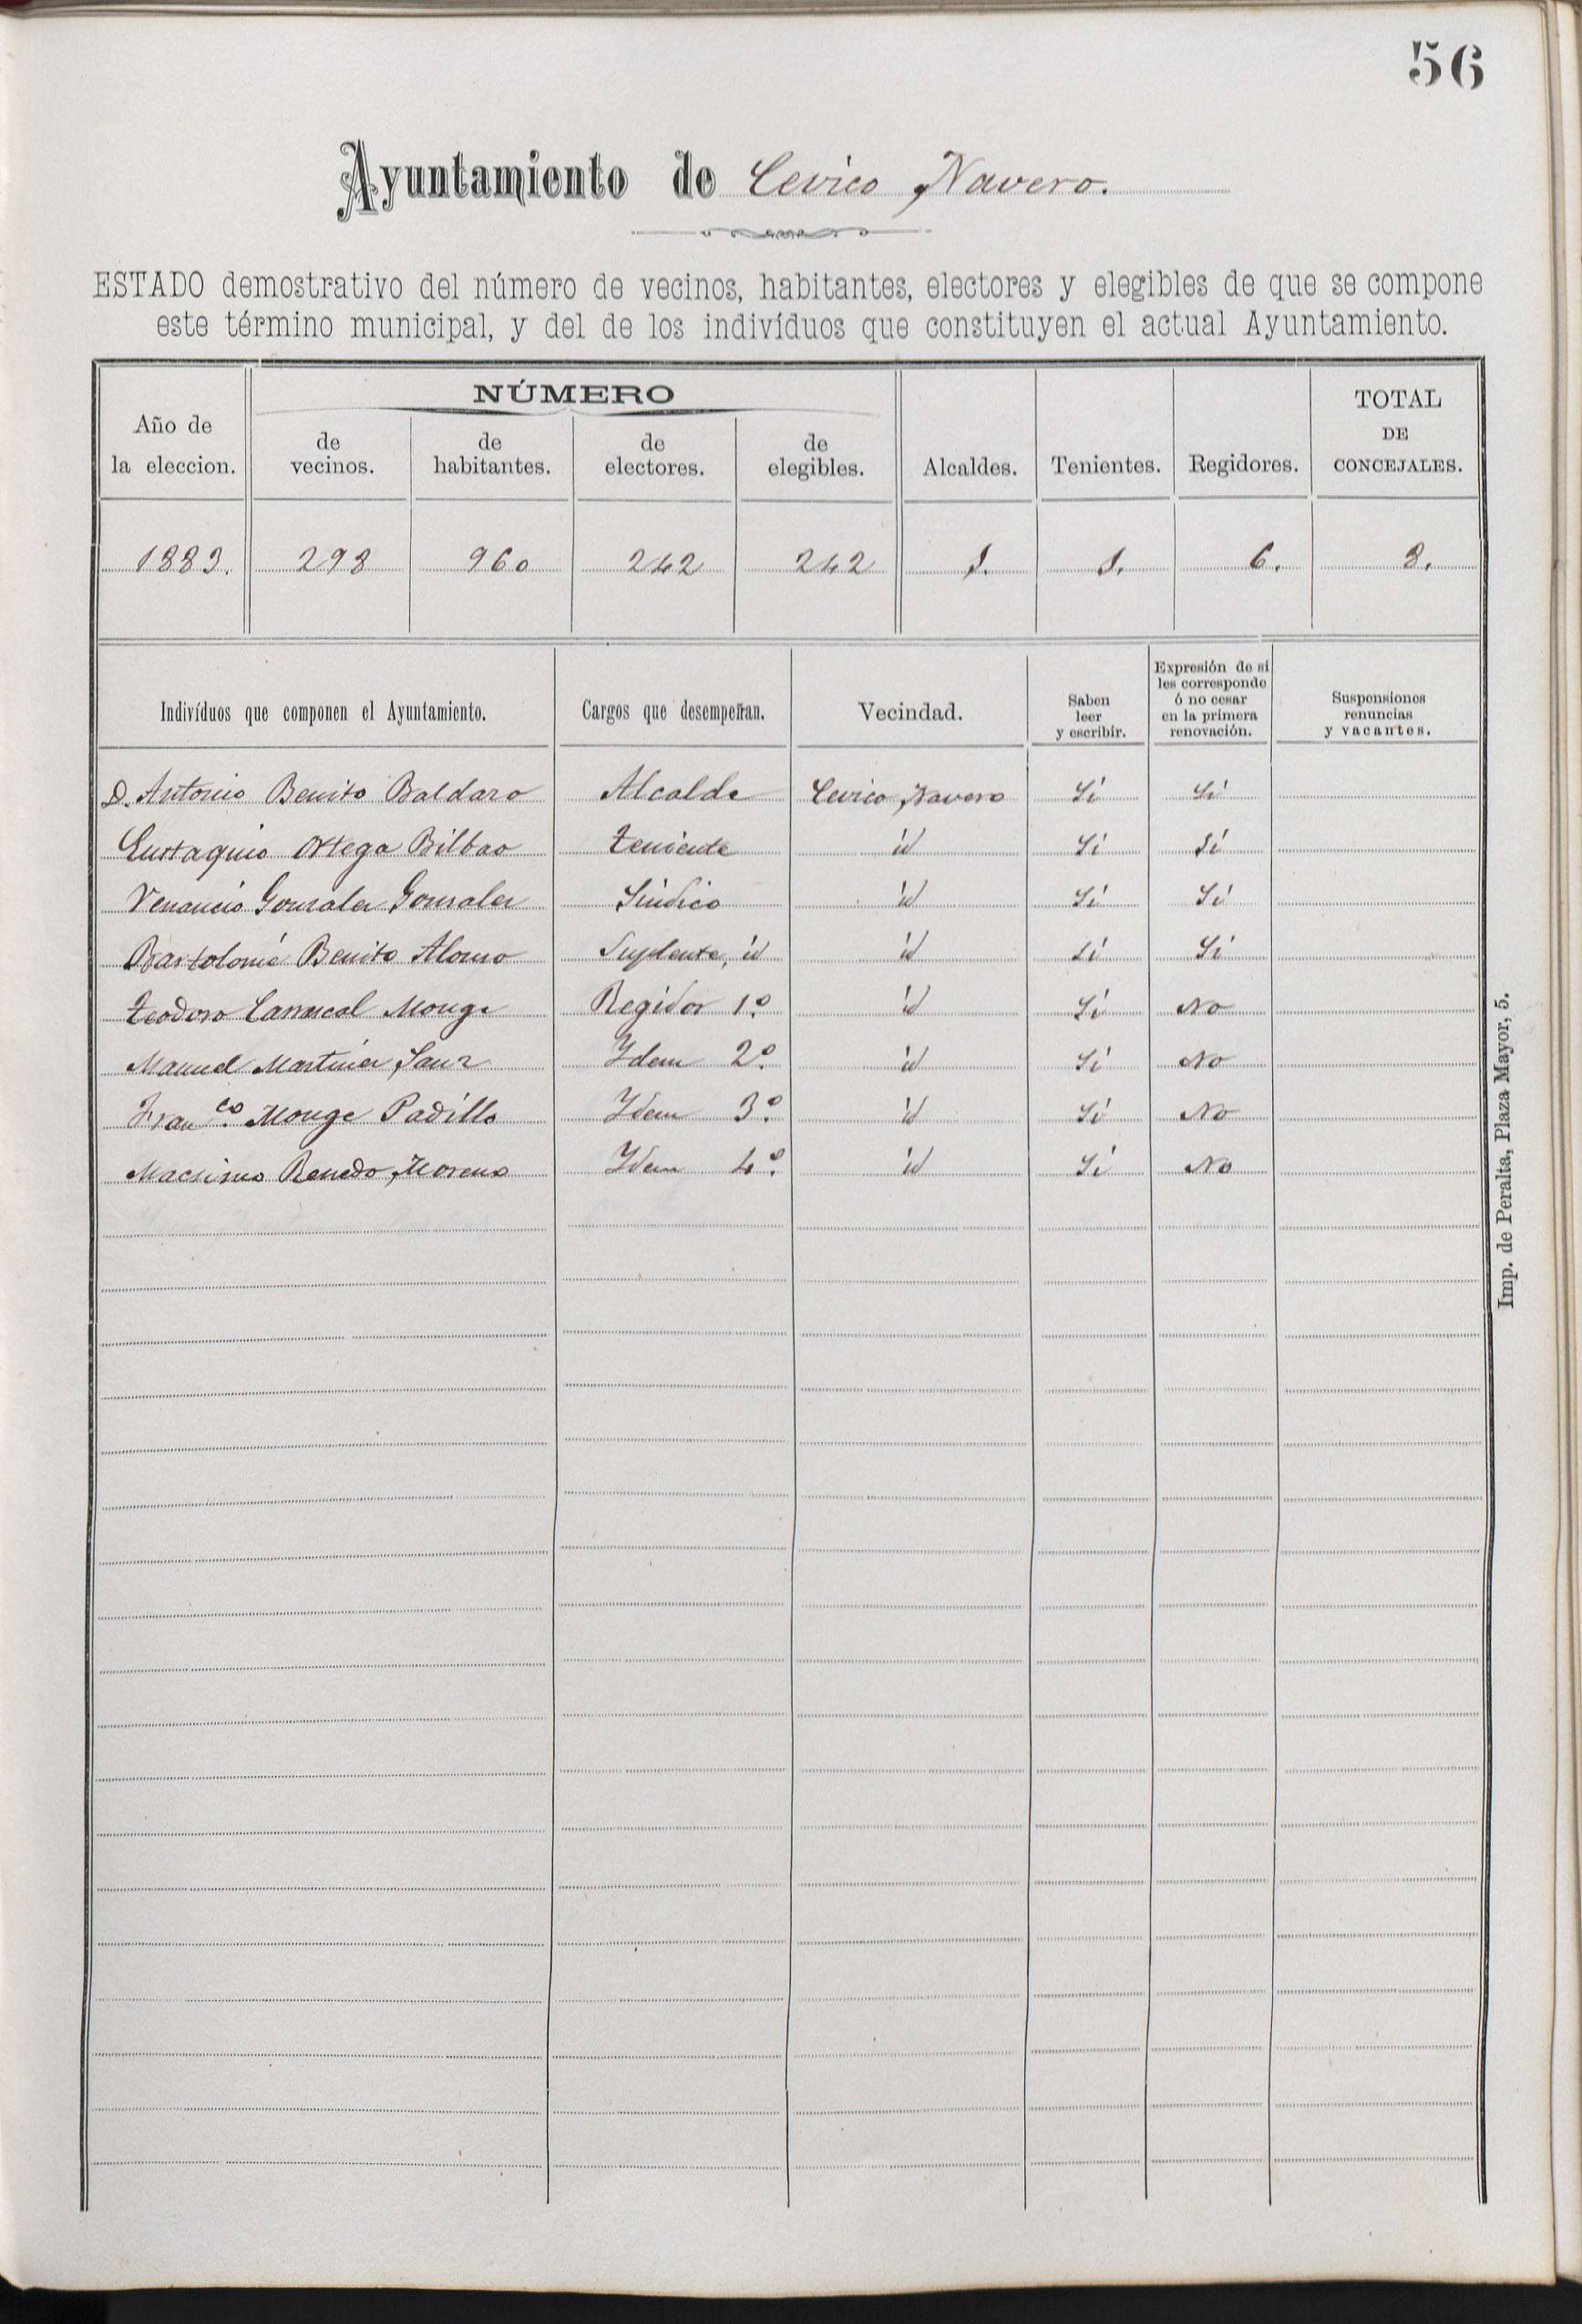 56
Ayuntamiento de Cevico Navero.
ESTADO demostrativo del número de vecinos, habitantes, electores y elegibles de que se compone
este término municipal, y del de los indivíduos que constituyen el actual Ayuntamiento.
Año de la eleccion. NÚMERO de vecinos. de habitantes. de electores. de elegibles. Alcaldes. Tenientes. Regidores. TOTAL DE CONCEJALES.
1883. 298 960 242 242 1. 1. 6. 8.
Indivíduos que componen el Ayuntamiento. Cargos que desempeñan. Vecindad. Saben leer y escribir. Expresión de si les corresponde ó no cesar en la primera renovación. Suspensiones renuncias y vacantes.
D. Antonio Benito Baldaro Alcalde Cevico Navero Si Si
Eustaquio Ortega Bilbao Teniente id Si Si
Venancio Gonzalez Gonzalez Síndico id Si Si
Bartolomé Benito Alonso Suplente, id id Si Si
Teodoro Carrascal Monge Regidor 1º. id Si No
Manuel Martinez Sanz Idem 2º. id Si No
Fran.co Monge Padilla Idem 3º. id Si No
Macsimo Renedo Moreno Idem 4º. id Si No
Imp. de Peralta, Plaza Mayor, 5.